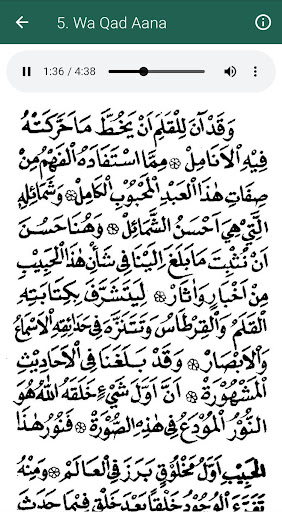 5. Wa Qad Aana
1:36 / 4:38
وَقَدْ آنَ لِلْقَلَمِ اَنْ يَخُطَّ مَا حَرَّكَتْهُ
فِيْهِ الْاَنَامِلُ ۞ مِمَّا اسْتَفَادَهُ الْفَهْمُ مِنْ
صِفَاتِ هٰذَا الْعَبْدِ الْمَحْبُوْبِ الْكَامِلِ ۞ وَشَمَائِلِهِ
الَّتِيْ هِيَ اَحْسَنُ الشَّمَائِلِ ۞ وَهُنَا حَسُنَ
اَنْ نُثْبِتَ مَا بَلَغَ اِلَيْنَا فِيْ شَأْنِ هٰذَا الْحَبِيْبِ
مِنْ اَخْبَارٍ وَاٰثَارٍ ۞ لِيَتَشَرَّفَ بِكِتَابَتِهِ
الْقَلَمُ وَالْقِرْطَاسُ وَتَتَنَزَّهَ فِيْ حَدَائِقِهِ الْاَسْمَاعُ
وَالْاَبْصَارُ ۞ وَقَدْ بَلَغَنَا فِي الْاَحَادِيْثِ
الْمَشْهُوْرَةِ ۞ اَنَّ اَوَّلَ شَيْءٍ خَلَقَهُ اللهُ هُوَ
النُّوْرُ الْمُوْدَعُ فِيْ هٰذِهِ الصُّوْرَةِ ۞ فَنُوْرُ هٰذَا
الْحَبِيْبِ اَوَّلُ مَخْلُوْقٍ بَرَزَ فِي الْعَالَمِ ۞ وَمِنْهُ
تَفَرَّعَ الْوُجُوْدُ خَلْقًا بَعْدَ خَلْقٍ فِيْمَا حَدَثَ